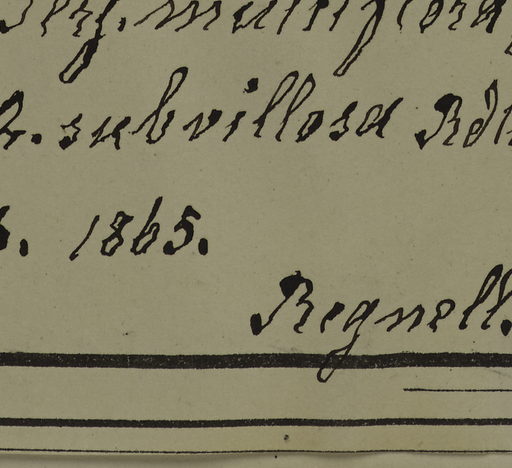 Serj. multiflora,
2. subvillosa Rdlk
6. 1865.
Regnell.